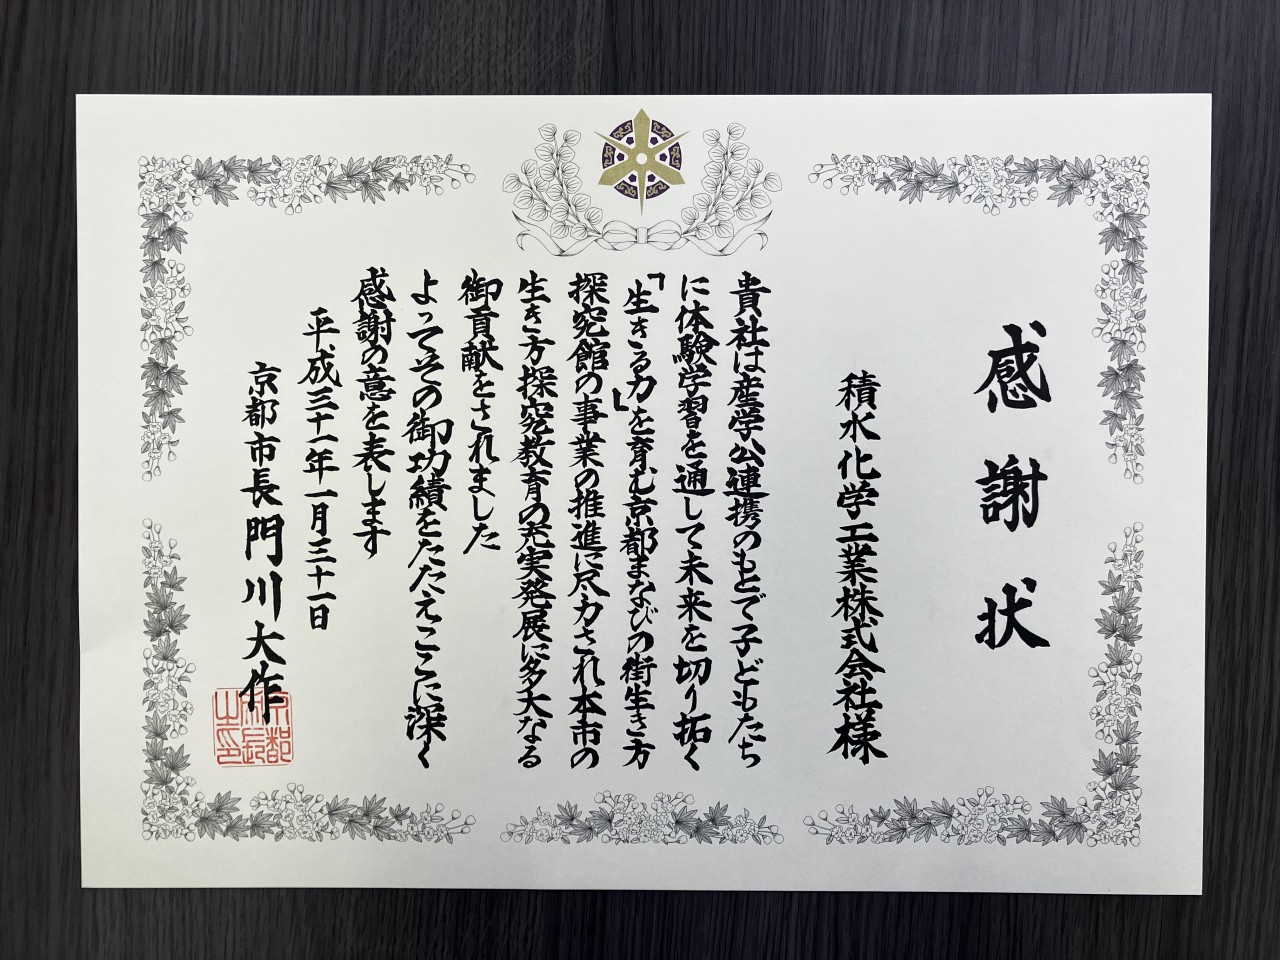 感謝状
積水化学工業株式会社様
貴社は産学公連携のもとで子どもたち
に体験学習を通して未来を切り拓く
「生きる力」を育む京都まなびの街生き方
探究館の事業の推進に尽力され本市の
生き方探究教育の充実発展に多大なる
御貢献をされました
よってその御功績をたたえここに深く
感謝の意を表します
平成三十一年一月三十一日
京都市長門川大作
京都市長之印